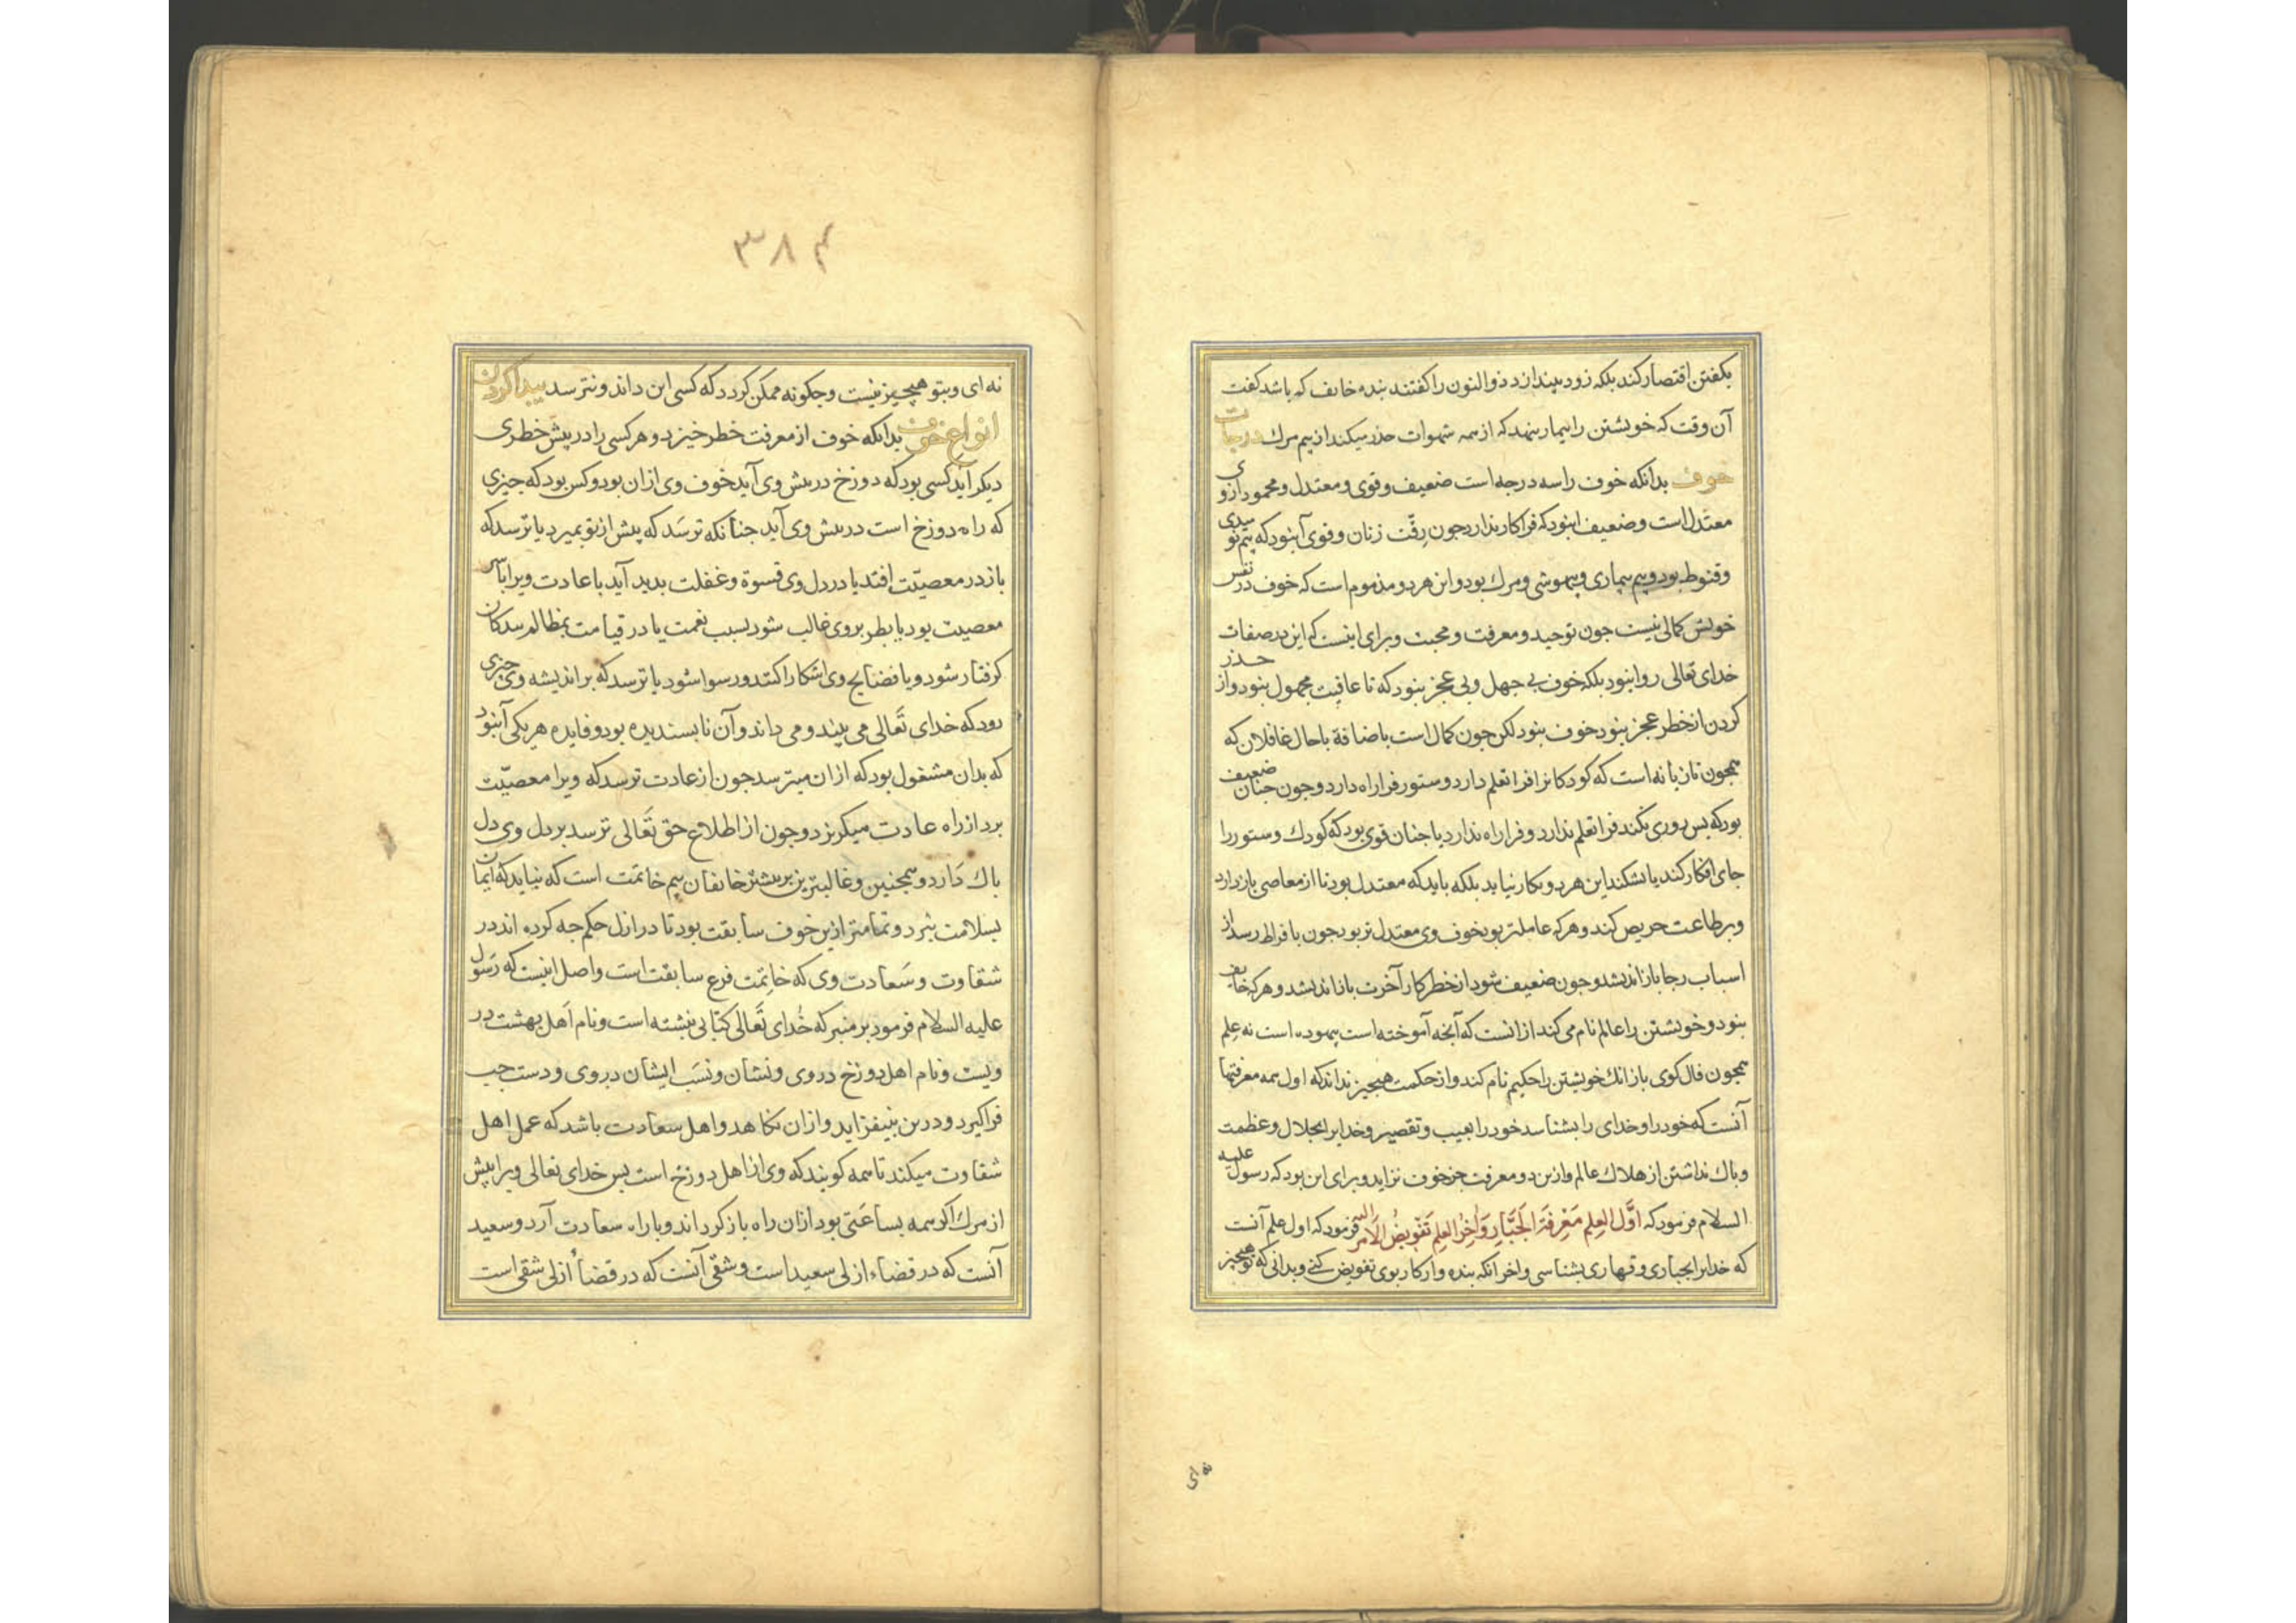 بکفتن اقتصار کند بلکه زود بیندازد ذوالنون را کفتند بنده خایف که باشد کفت
آن وقت که خویشتن را بیمار بنهد که از همه شهوات حذر میکند از بیم مرك درجات
خوف بدانکه خوف را سه درجه است ضعیف و قوی و معتدل و محمود ازوی
معتدل است و ضعیف آنبود که فرا کار ندارد جون رقّت زنان و قوی آنبود که بیم نومیدی
و قنوط بود و بیم بیماری و بیهوشی و مرك بود و این هر دو مذموم است که خوف در نفس
خویش کمالی نیست جون توحید و معرفت و محبت و برای اینست که این در صفات
خدای تعالی روا نبود بلکه خوف بی جهل و بی عجز بنود که تا عاقبت مجهول بنود و از حذر
کردن از خطر عجز بنود خوف بنود لکن جون کمال است باضافة با حال غافلان که
همجون تازیانه است که کودکانرا فرا تعلم دارد و ستور فرا راه دارد و جون جنان ضعیف
بود که بس دردی نکند فرا تعلم ندارد و فرا راه ندارد یا جنان قوی بود که کودك و ستور را
جای افکار کند یا بشکند این هر دو بکار نیاید بلکه باید که معتدل بود تا از معاصی باز دارد
و بر طاعت حریص کند و هر که عاملتر بود خوف وی معتدل تر بود جون بافراط رسد از
اسباب رجا باز اندیشد و جون ضعیف شود از خطر کار آخرت باز اندیشد و هر که خایف
بنود و خویشتن را عالم نام می کند از انست که آنجه آموخته است بیهوده است نه علم
همجون فال کوی بازار که خویشتن را حکیم نام کند و از حکمت هیجیز نداند که اول همه معرفتها
آنست که خود را و خدای را بشناسد خود را بعیب و تقصیر و خدایرا بجلال و عظمت
و باك نداشتن از هلاك عالم و ازین دو معرفت جز خوف نزاید و برای این بود که رسول علیه
السلام فرمود که اَوَّل العِلمِ مَعْرِفَة الجَبّارِ وَآخِرُ العِلمِ تَفْویضُ الاَمرِ الیه فرمود که اول علم آنست
که خدایرا بجباری و قهاری بشناسی و آخر آنکه بنده وار کار بوی تفویض کنی و بدانی که تو هیجیز
نه ای
۳۸۴
نه ای و بتو هیچ چیز نیست و جکونه ممکن کردد که کسی این داند و نترسد پیدا کردن
انواع خوف بدانکه خوف از معرفت خطر خیزد و هر کسی را در پیش خطری
دیکر آید کسی بود که دوزخ در بیش وی آید خوف وی از ان بود و کس بود که جیزی
که راه دوزخ است در بیش وی آید جنانکه ترسَد که پیش از توبه بمیرد یا ترسد که
باز در معصیّت افتد یا در دل وی قسوة و غفلت بدید آید یا عادت ویرا با سر
معصیت بود یا بطر بر وی غالب شود بسبب نعمت یا در قیامت بمظالم سدکان
کرفتار شود و یا فضایح وی اشکارا کنند و رسوا شود یا ترسد که بر اندیشه وی جیزی
رود که خدای تَعالی می بیند و می داند و آن نابسندیده بود و فایده هر یکی آنبود
که بدان مشغول بود که از ان میترسد جون از عادت ترسد که ویرا معصیّت
برد از راه عادت میکریزد و جون از اطلاع حق تَعالی ترسد بر دل وی دل
باك دَارد و همجنین و غالبترین بر بیشتر خایفان بیم خاتمت است که نباید که ایمان
بسلامت نبرد و تمامتر ازین خوف سابقت بود تا در ازل حکم جه کرده اند در
شقاوت و سَعادت وی که خاتِمَت فرع سابقت است و اصل اینست که رَسول
علیه السلام فرمود بر منبر که خُدای تَعالی کتابی نبشته است و نام اَهل بهشت در
ویست و نام اهل دوزخ در وی و نشان و نسَب ایشان در وی و دست جب
فرا کیرد و درین نیفزاید و از ان نکاهد و اهل سعادت باشد که عمل اهل
شقاوت میکند تا همه کویند که وی از اهل دوزخ است بس خدای تعالی ویرا پیش
از مرك اکر همه بساعَتی بود از ان راه باز کرداند و با راه سعادت آرد و سعید
آنست که در قضاء ازلی سعید است و شقی آنست که در قضاء اَزلی شقی است